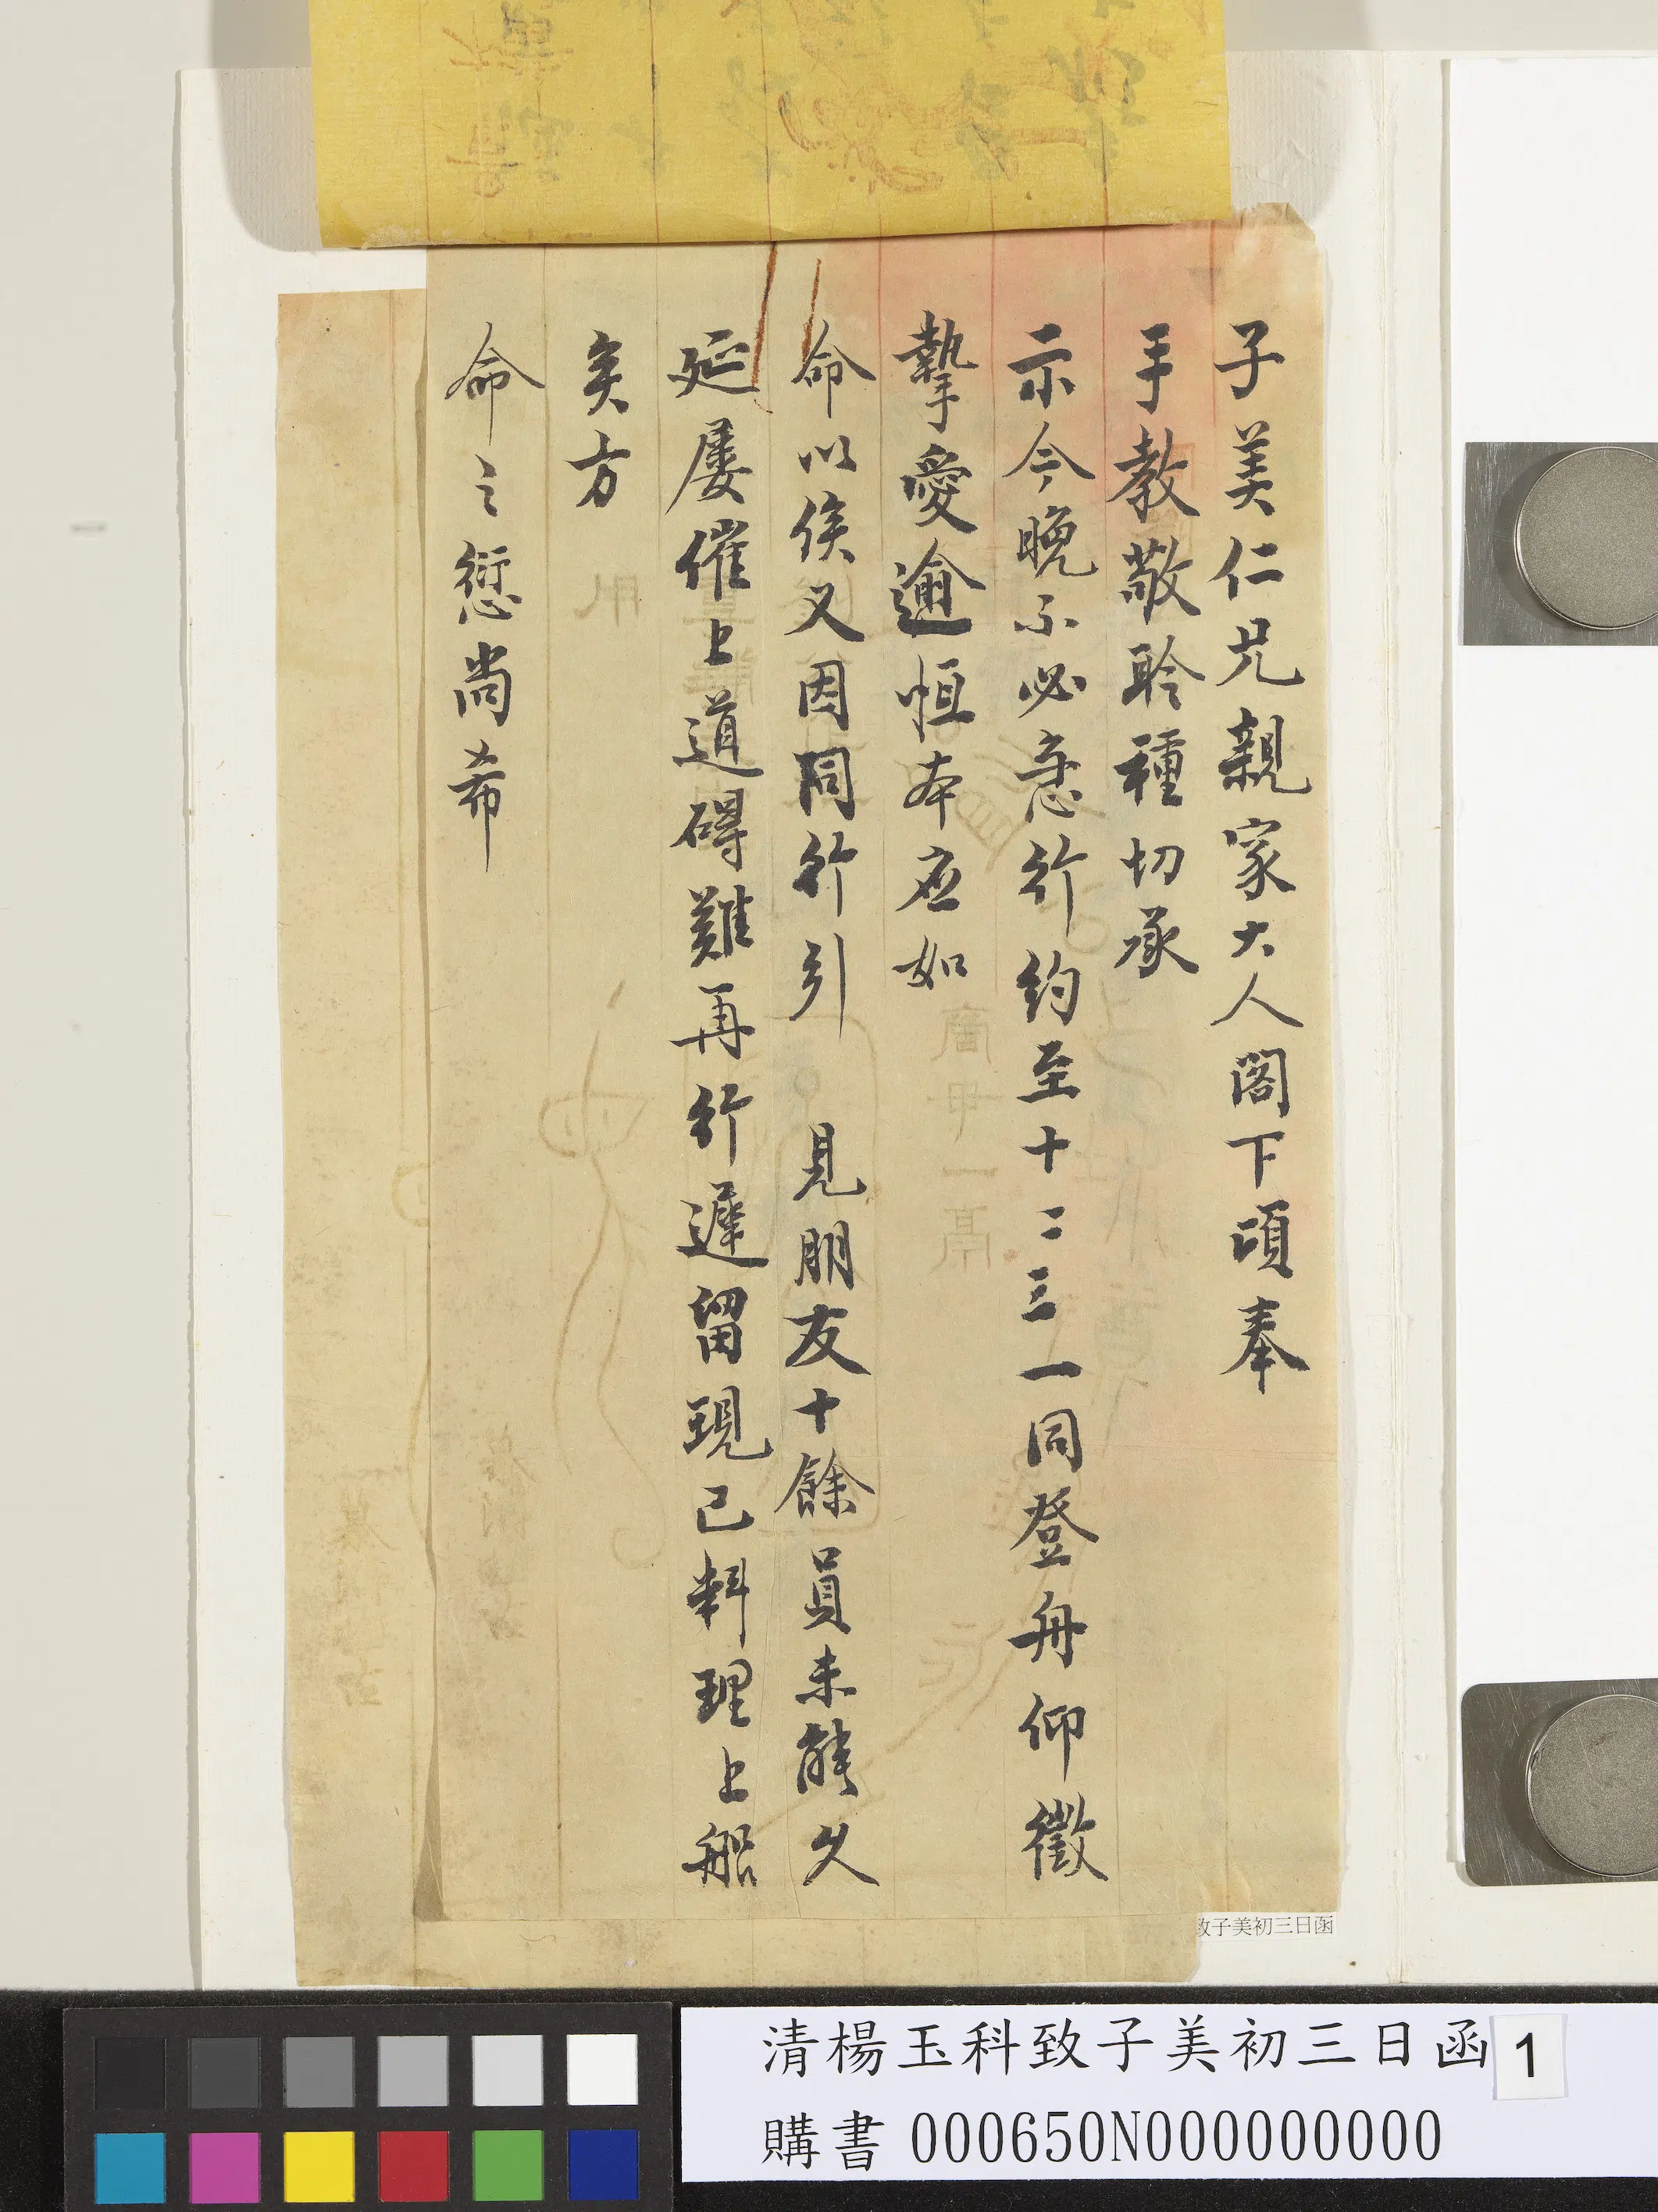 子美仁兄親家大人閣下頃奉
手教敬聆種切承
示今晚不必急行約至十二三一同登舟仰徵
摯愛逾恒本应如
命以俟又因同行引 見朋友十餘員未能久
延屢催上道碍難再行遲留現已料理上船
矣方
命之愆尚希
致子美初三日函
清楊玉科致子美初三日函 1
購書 000650N000000000